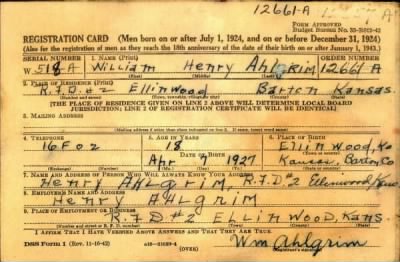 12661-A
FORM APPROVED
REGISTRATION CARD (Men born on or after July 1, 1924, and on or before December 31, 1924)
(Also for the registration of men as they reach the 18th anniversary of the date of their birth on or after January 1, 1943.)
SERIAL NUMBER 1. NAME (Print) ORDER NUMBER
W 518-A William Henry Ahlgrim 12661A
(First) (Middle) (Last)
2. PLACE OF RESIDENCE (Print)
R.F.D #2 Ellinwood Barton Kansas.
(Number and street) (Town, township, village, or city) (County) (State)
[THE PLACE OF RESIDENCE GIVEN ON LINE 2 ABOVE WILL DETERMINE LOCAL BOARD
JURISDICTION; LINE 2 OF REGISTRATION CERTIFICATE WILL BE IDENTICAL]
3. MAILING ADDRESS
4. TELEPHONE 5. AGE IN YEARS 6. PLACE OF BIRTH
16F02 18 Ellinwood,
Apr 7 1927 Kansas, Barton Co
7. NAME AND ADDRESS OF PERSON WHO WILL ALWAYS KNOW YOUR ADDRESS
Henry Ahlgrim, R.F.D #2 Ellinwood, Kans.
8. EMPLOYER'S NAME AND ADDRESS
Henry Ahlgrim
9. PLACE OF EMPLOYMENT OR BUSINESS
R.F.D #2 Ellinwood, Kans.
I AFFIRM THAT I HAVE VERIFIED ABOVE ANSWERS AND THAT THEY ARE TRUE.
DSS Form 1 (Rev. 11-16-42)
Wm Ahlgrim